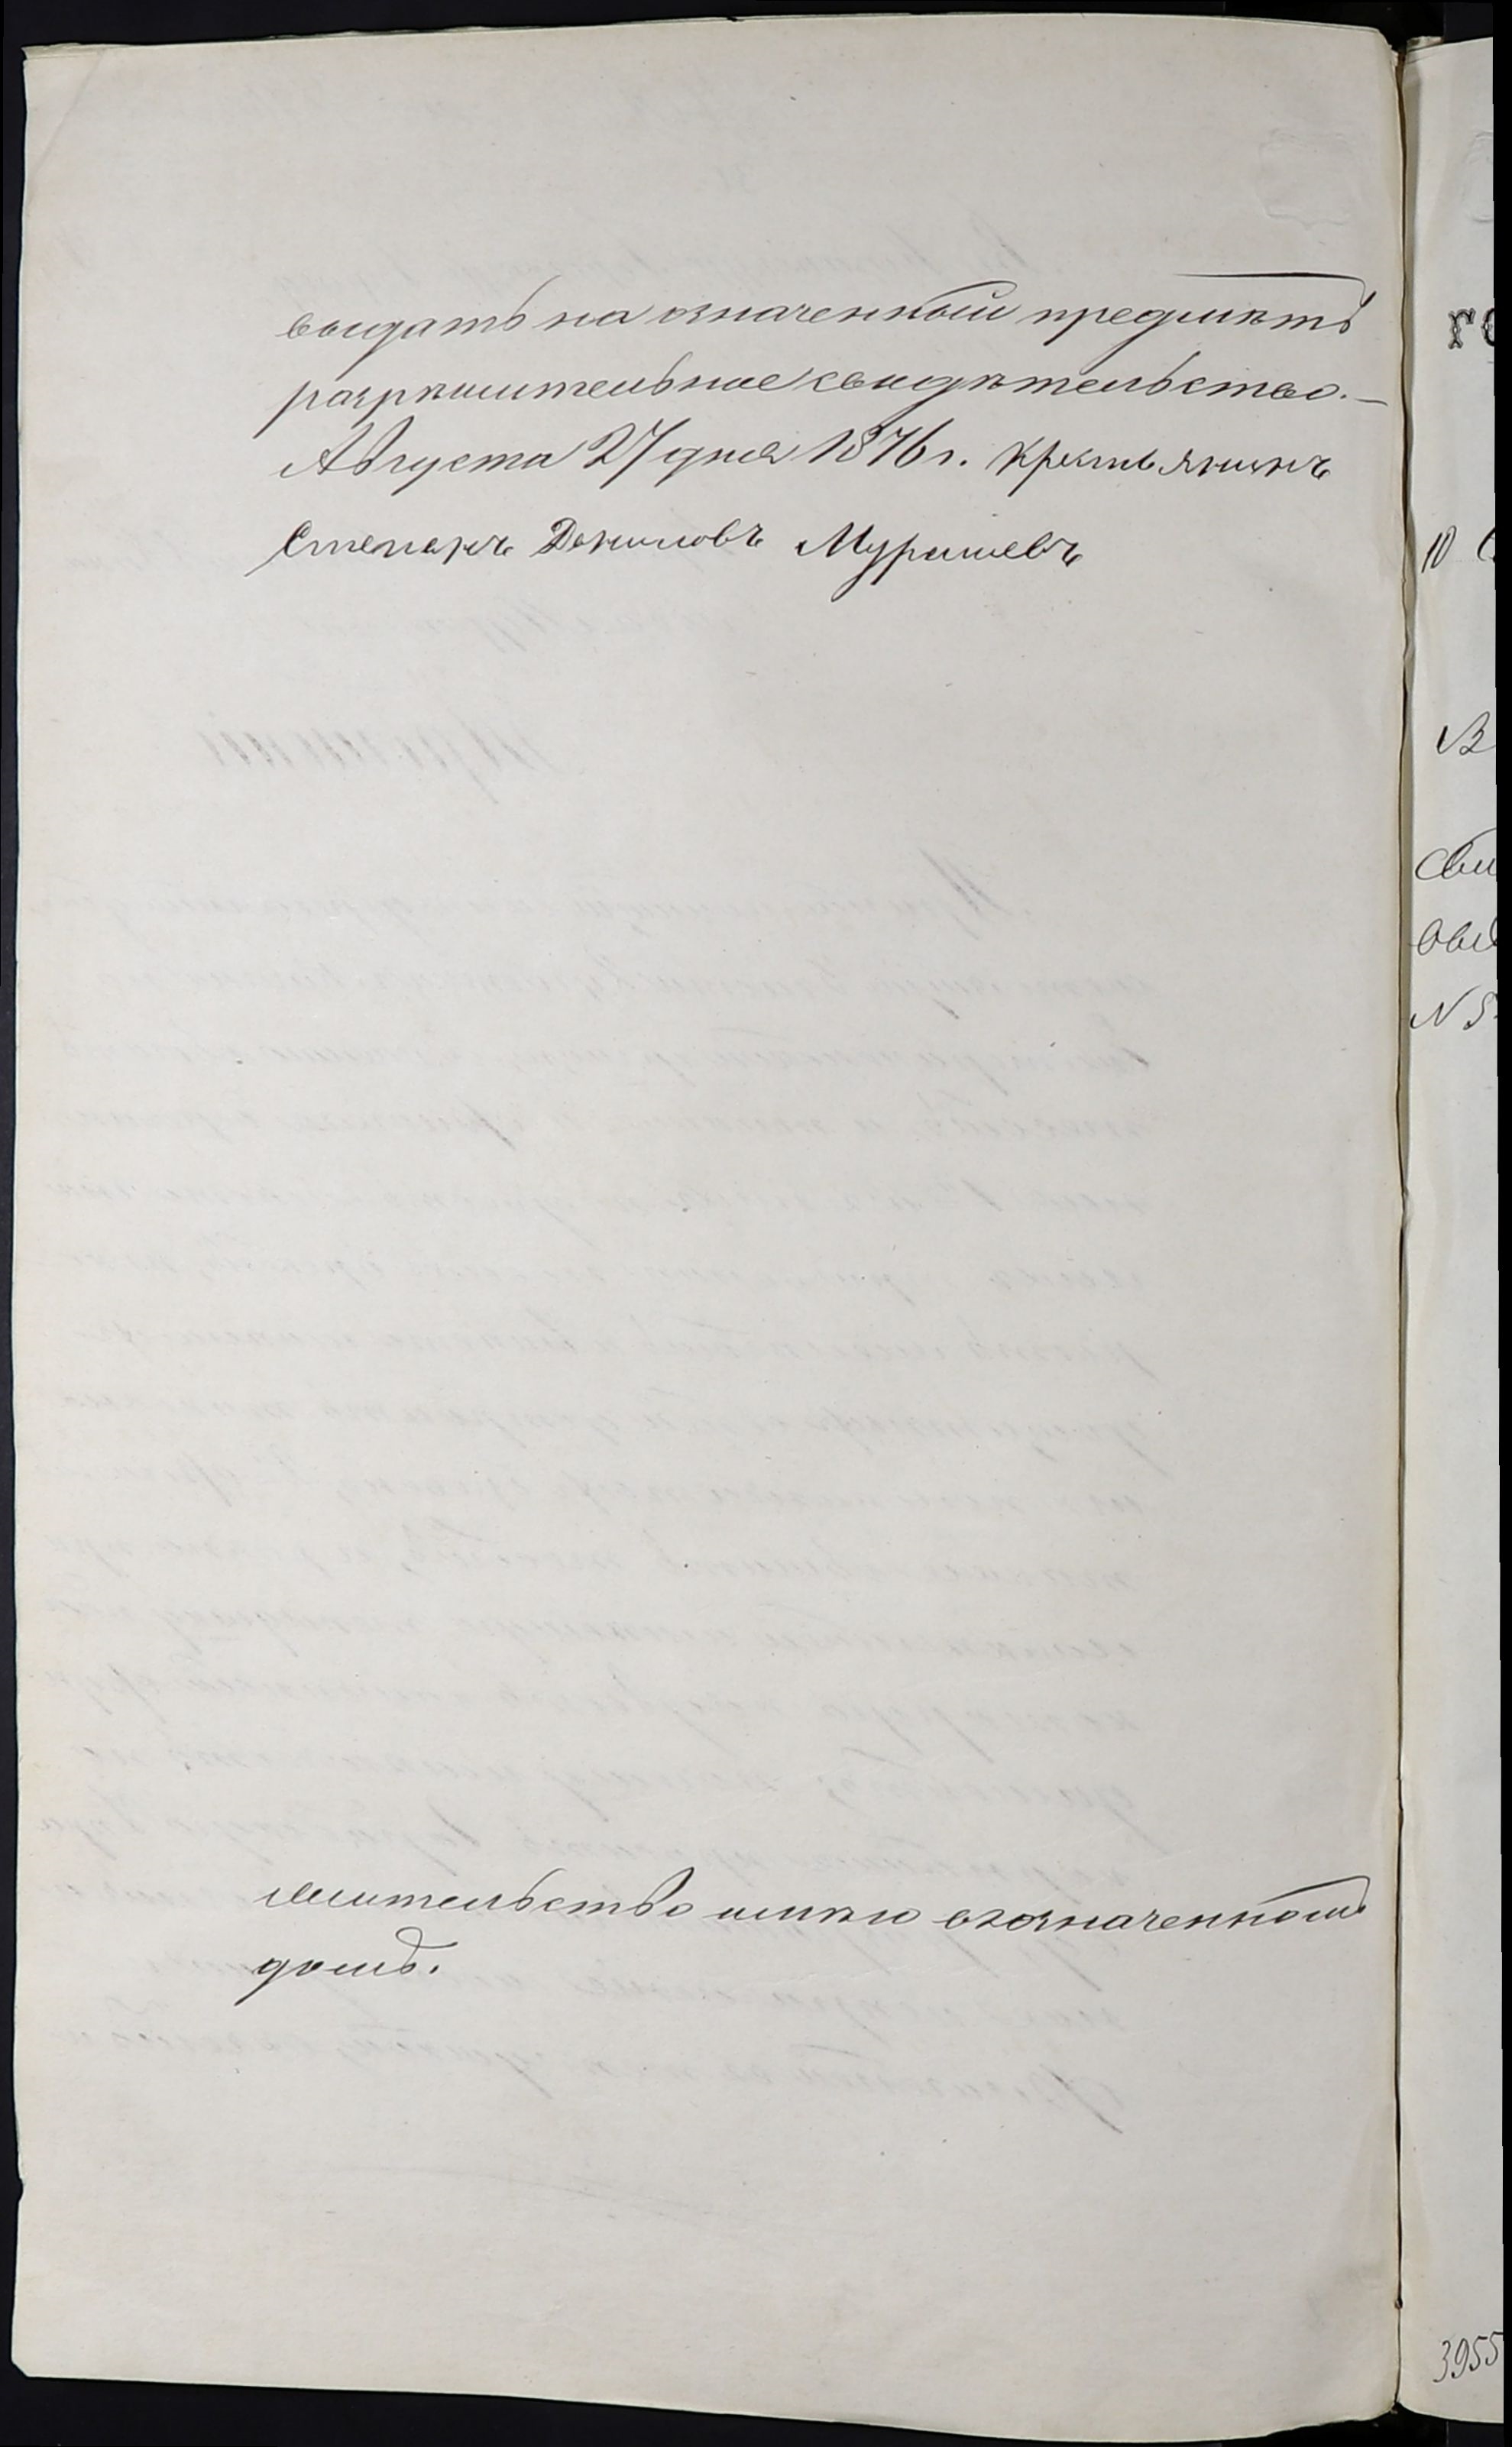 выдать на означенный предмѣтъ
разрѣшительное свидѣтельство.—
Августа 27 дня 1876 г. Крестьянинъ
Степанъ Даниловъ Мурашевъ
жительство имѣю в означенномъ
домѣ.
10
В
Сви
№ 5
3955